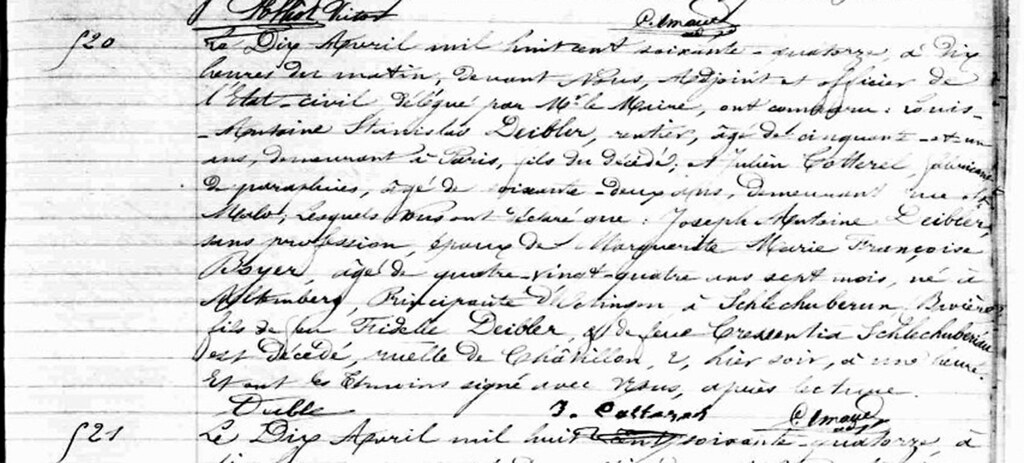 520
Le Dix Avril mil huit cent soixante-quatorze, à dix
heures du matin, devant Nous, Adjoint et officier de
l'Etat-civil délégué par Mr le Maire, ont comparu : Louis-
-Antoine Stanislas Deibler, rentier, âgé de cinquante-et-un
ans, demeurant à Paris, fils du décédé, et Julien Cotterel, fabricant
de parapluies, âgé de soixante-deux ans, demeurant rue St
Malo ; Lesquels Nous ont déclaré que : Joseph Antoine Deibler,
sans profession, époux de Marguerite Marie Françoise
Boyer, âgé de quatre-vingt-quatre ans sept mois, né à
Principauté à Bavière
fils de feu Fidelle Deibler, & de feue Cressentia
est décédé, ruelle de Châtillon, 2, hier soir, à une heure.
Et ont les témoins signé avec Nous, après lecture.
J. Cotterel
521
Le Dix Avril mil huit cent soixante-quatorze, à